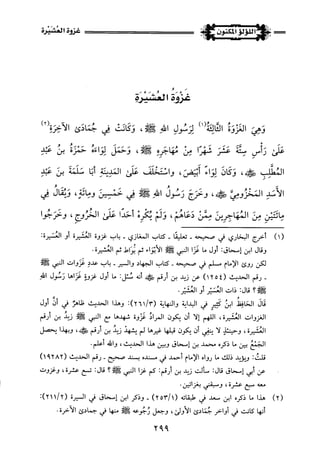 اللؤلؤ المكنون
غزوة العُشَيْرَة
غَزْوَةُ العُشَيْرَةِ
وَهِيَ الغَزْوَةُ الثَّالِثَةُ(١) لِرَسُولِ اللهِ ﷺ، وَكَانَتْ فِي جُمَادَى الآخِرَةِ(٢)
عَلَى رَأْسِ سِتَّةَ عَشَرَ شَهْرًا مِنْ مُهَاجَرِهِ ﷺ، وَحَمَلَ لِوَاءَهُ حَمْزَةُ بنُ عَبْدِ
المُطَّلِبِ ﷺ، وَكَانَ لِوَاءً أَبْيَضَ، وَاسْتَخْلَفَ عَلَى المَدِينَةِ أَبَا سَلَمَةَ بنَ عَبْدِ
الأَسَدِ المَخْزُومِيَّ ﷺ، وَخَرَجَ رَسُولُ اللهِ ﷺ فِي خَمْسِينَ ومِائَةٍ، وَيُقَالُ فِي
مِائَتَيْنِ مِنَ المُهَاجِرِينَ مِمَّنْ دَعَاهُمْ، وَلَمْ يُكْرِهْ أَحَدًا عَلَى الخُرُوجِ، وَخَرَجُوا
(١) أخرج البخاري في صحيحه ـ تعليقًا ـ كتاب المغازي ـ باب غزوة العُشَيرة أو العُسَيرة:
وقال ابن إسحاق: أول ما غزا النبي ﷺ الأَبْوَاء ثم بُوَاط ثم العُشَيرة.
لكن روى الإمام مسلم في صحيحه ـ كتاب الجهاد والسير ـ باب عدد غزوات النبي ﷺ
ـ رقم الحديث (١٢٥٤) عن زيد بن أرقم ﷺ أنه سُئل: ما أول غزوة غَزَاها رَسُول الله
ﷺ؟ قال: ذات العُسَيْر أو العُشَيْر.
قَالَ الحَافِظُ ابنُ كَثِيرٍ في البداية والنهاية (٢٦١/٣): وهذا الحديث ظاهرٌ في أن أول
الغزوات العُشَيرة، اللهم إلا أن يكون المرادُ غزوة شهدها مع النبي ﷺ زيدُ بن أرقم
العُشَيرة، وحينئذٍ لا ينفي أن يكون قبلها غيرها لم يشهد زيدُ بن أرقم ﷺ، وبهذا يحصل
الجَمْعُ بين ما ذكره محمد بن إسحاق وبين هذا الحديث، والله أعلم.
قلتُ: ويؤيد ذلك ما رواه الإمام أحمد في مسنده بسند صحيح ـ رقم الحديث (١٩٢٨٢)
عن أبي إسحاق قال: سألت زيد بن أرقم: كم غزا النبي ﷺ؟ قال: تسع عشرة، وغزوت
معه سبع عشرة، وسبقني بغزاتين.
(٢) هذا ما ذكره ابن سعد في طبقاته (٢٥٣/١) ـ وذكر ابن إسحاق في السيرة (٢١١/٢):
أنها كانت في أواخر جُمَادَى الأولى، وجعل رُجُوعه ﷺ منها في جمادى الآخرة.
٢٩٩